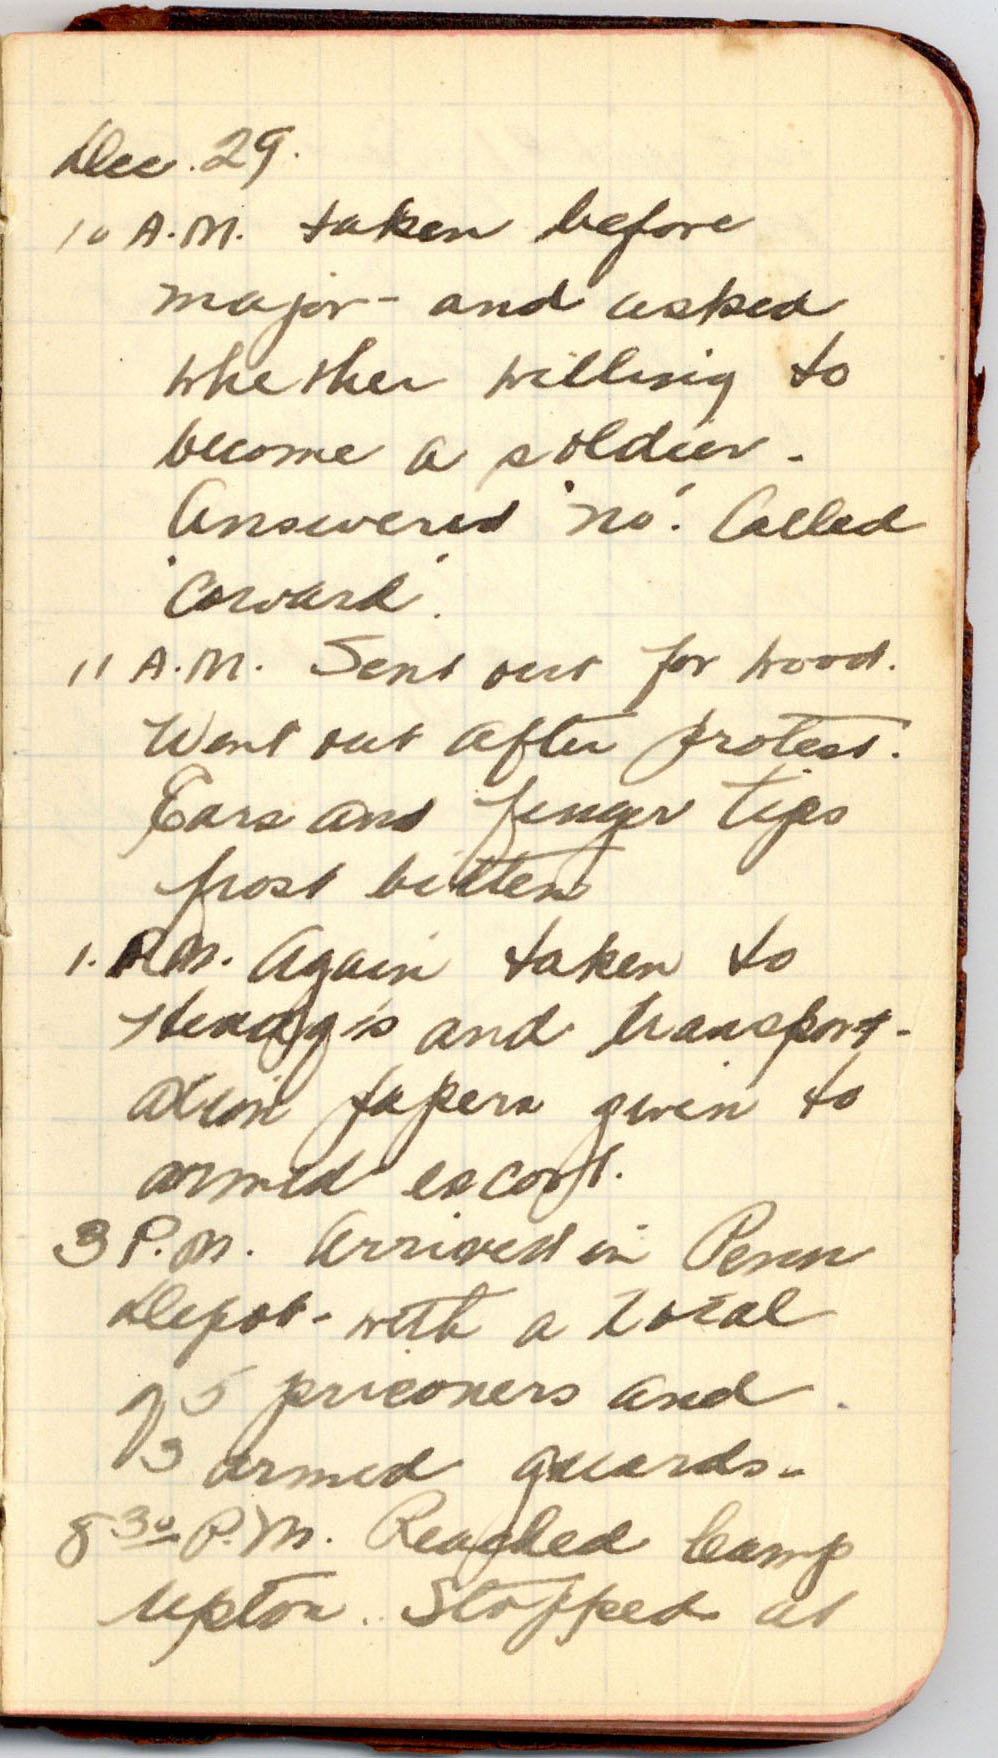 Dec. 29.
10 A.M. taken before
major - and asked
whether willing to
become a soldier.
Answered 'no'. Called
'coward'.
11 A.M. Sent out for wood.
Went out after protest.
Ears and finger tips
frost bitten
1. P.M. Again taken to
and transport-
ation papers given to
armed escort.
3 P.M. Arrived in Penn
Depot - with a total
of 5 prisoners and
3 armed guards -
8 30 P.M. Reached Camp
Upton. Stopped at